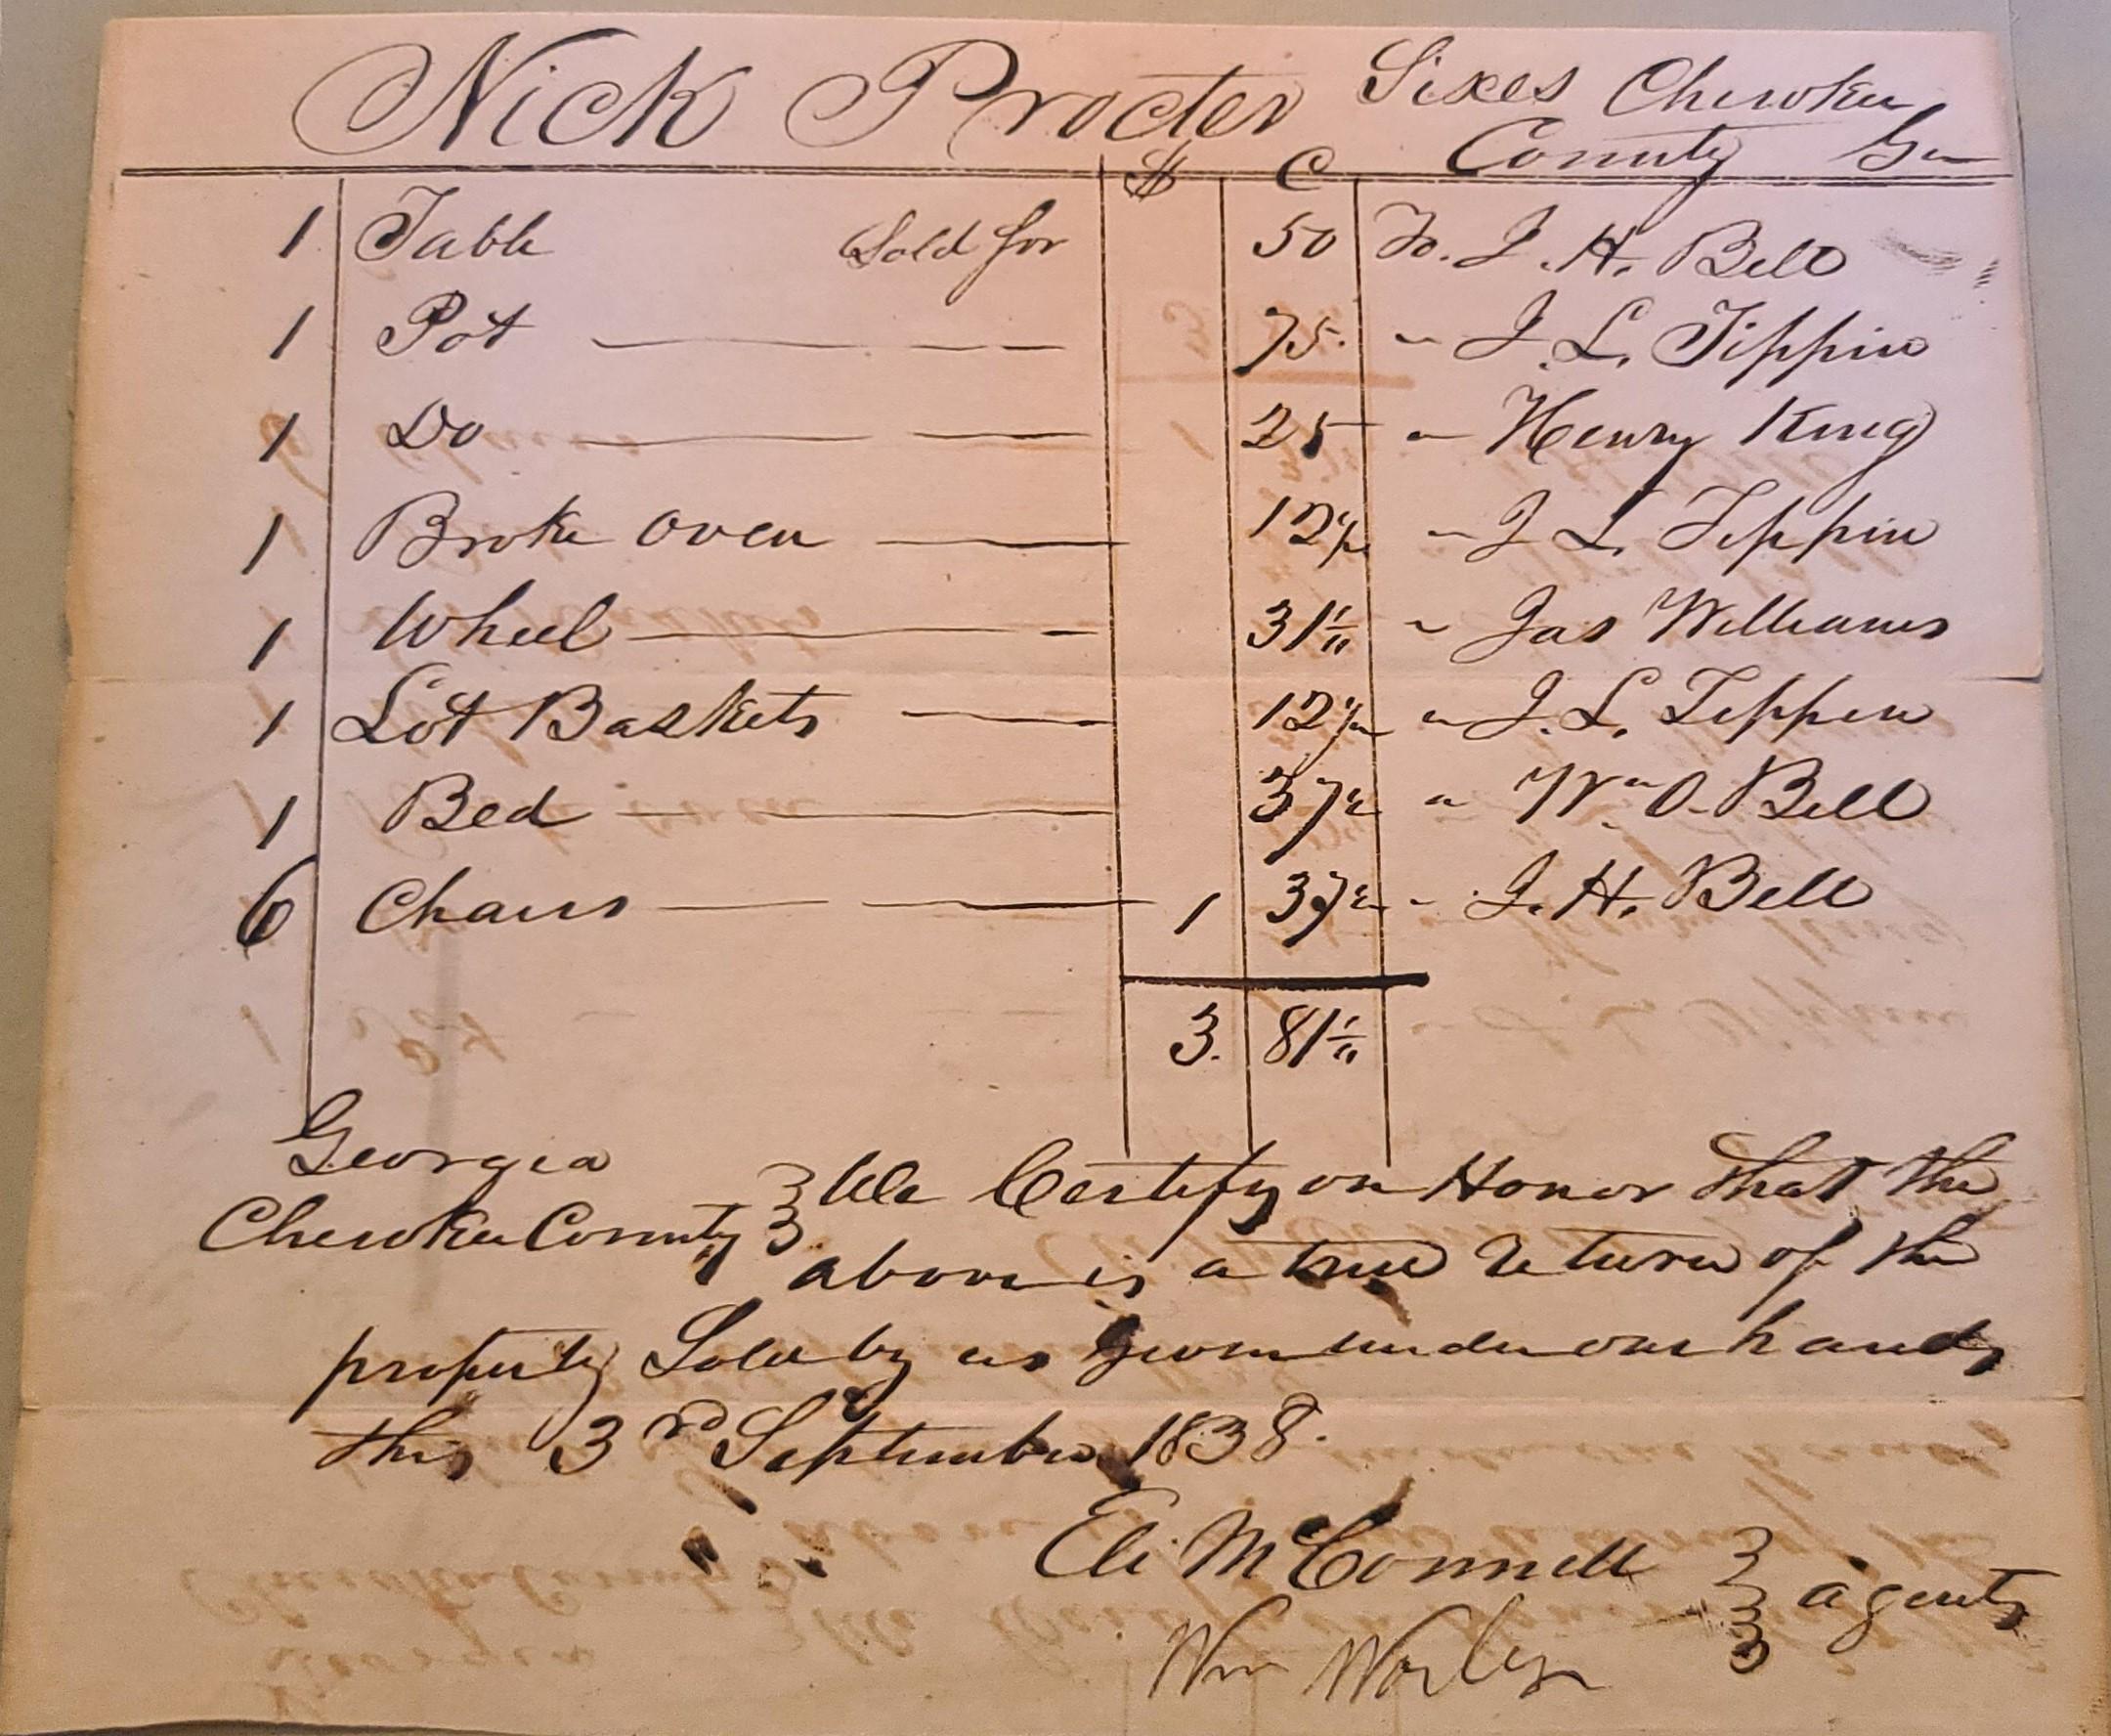 Nick Procter Sixes Cherokee
County Ga
$ C
1 Table Sold for 50 To. J. H. Bell
1 Pot 75. " J. L. Tippin
1 Do 25 " Henry King
1 Broke Oven 12½ " J L. Tippin
1 Wheel 31¼ " Jas Williams
1 Lot Baskets 12½ " J. L. Tippin
1 Bed 37½ " Wm O. Bell
6 Chairs 1 37½ " J. H. Bell
3. 81¼
Georgia
Cherokee County We Certify on Honor that the
above is a true return of the
property Sold by us Given under our hands
this 3rd September 1838.
Eli McConnell
agents
Wm Worley